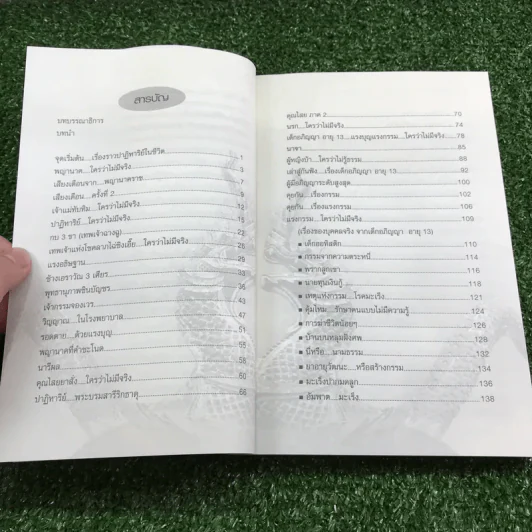 สารบัญ
บทบรรณาธิการ
บทนำ
จุดเริ่มต้น....เรื่องราวปาฏิหาริย์ในชีวิต 1
พญานาค....ใครว่าไม่มีจริง 3
เสียงเตือนจาก....พญานาคราช 7
เสียงเตือน....ครั้งที่ 2 9
เจ้าแม่ทับทิม....ใครว่าไม่มีจริง 12
ปาฏิหาริย์....ใครว่าไม่มีจริง 15
กบ 3 ขา (เทพเจ้าฉางฉู) 22
เทพเจ้าแห่งโชคลาภไฉ่ซิงเอี้ย....ใครว่าไม่มีจริง 25
แรงอธิษฐาน
ช้างเอราวัณ 3 เศียร 33
พุทธานุภาพชินบัญชร 36
เจ้ากรรมนายเวร 43
วิญญาณ....ในโรงพยาบาล 47
รอดตาย....ด้วยแรงบุญ 51
พญานาคที่คำชะโนด 55
นารีผล 58
คุณไสยยาสั่ง....ใครว่าไม่มีจริง 60
ปาฏิหาริย์....พระบรมสารีริกธาตุ 66
คุณไสย ภาค 2 70
นรก....ใครว่าไม่มีจริง 74
เด็กอภิญญา อายุ 13....แรงบุญแรงกรรม....ใครว่าไม่มีจริง 78
นาซา 85
ผู้หญิงบ้า....ใครว่าไม่รู้ธรรม 88
เล่าสู่กันฟัง....เรื่องเด็กอภิญญา อายุ 13 92
ผู้มีอภิญญาระดับสูงสุด 100
คุยกัน....เรื่องธรรม 102
คุยกัน....เรื่องแรงกรรม 106
แรงกรรม....ใครว่าไม่มีจริง 109
(เรื่องของบุคคลจริง จากเด็กอภิญญา อายุ 13)
■ เด็กออทิสติก 110
■ กรรมจากความตระหนี่ 114
■ พรากลูกเขา 116
■ นายทุนเงินกู้ 118
■ เหตุแห่งกรรม....โรคมะเร็ง 121
■ คุ้มไหม....รักษาคนแบบไม่มีความรู้ 124
■ การมาชีวิตน้อยๆ 126
■ บ้านบนหลุมฝังศพ 128
■ ผีหรือ....นามธรรม 132
■ ยาอายุวัฒนะ....หรือสร้างกรรม 134
■ มะเร็งปากมดลูก 136
■ อัมพาต....มะเร็ง 138